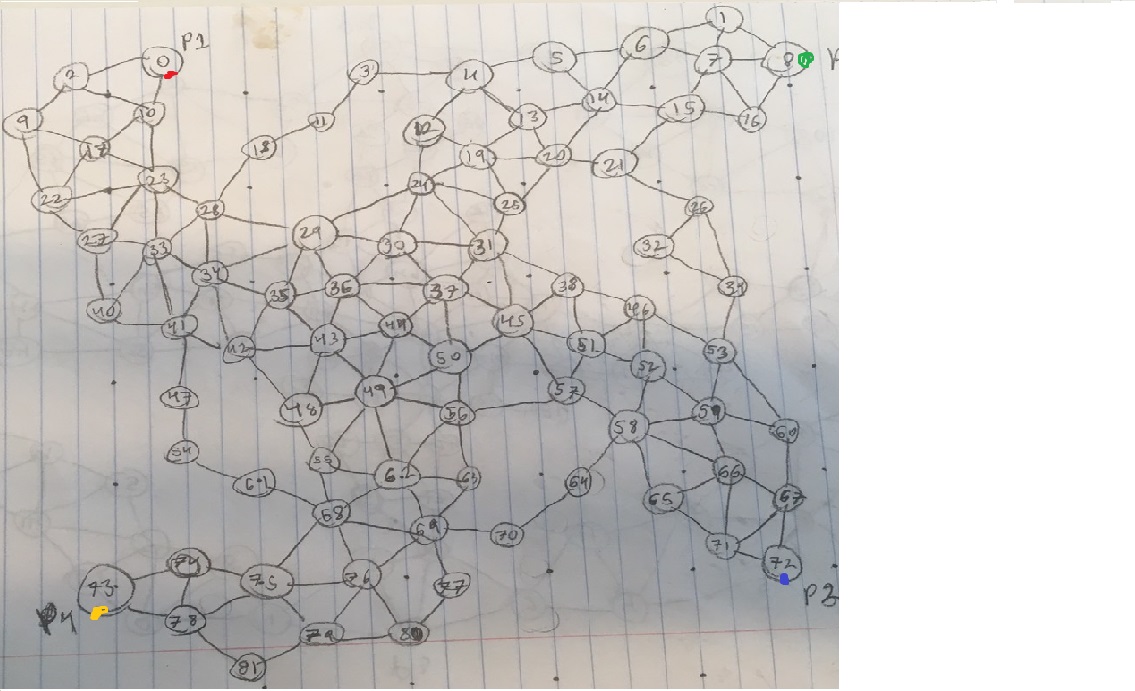 1
P1
0
6
5
2
3
4
7
8
9
10
11
10
13
14
15
16
17
18
19
20
21
22
23
24
25
26
27
28
29
30
31
32
33
34
35
36
37
38
39
40
41
42
43
44
45
46
47
48
49
50
51
52
53
54
55
56
57
58
59
60
61
62
63
64
65
66
67
68
69
70
71
72
P3
73
P4
74
75
76
77
78
79
80
81